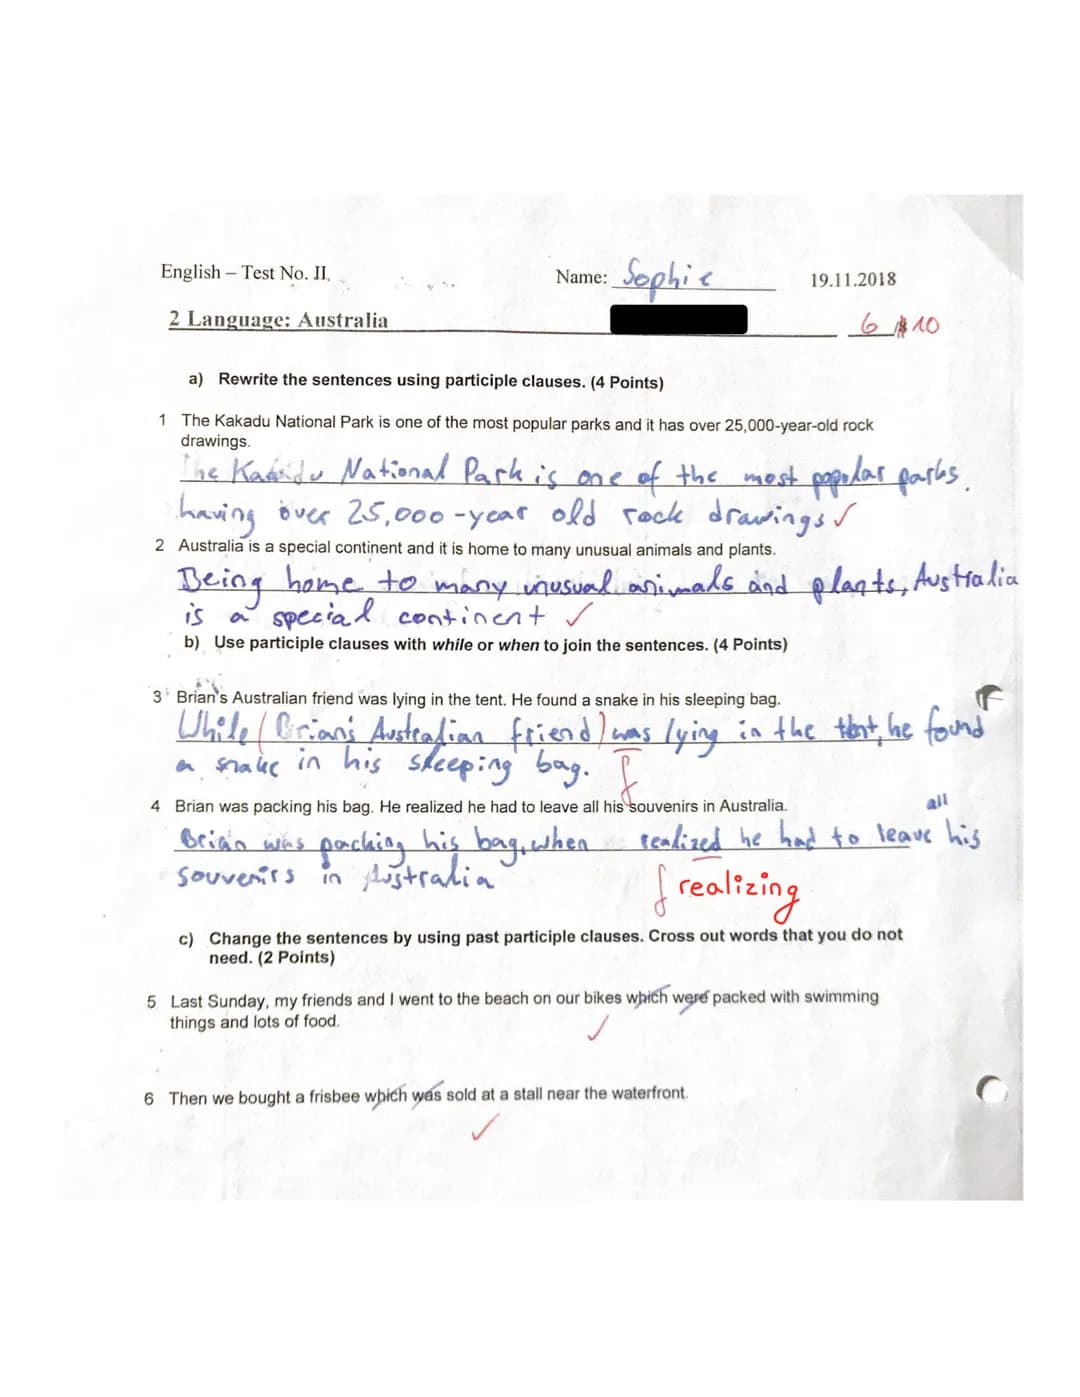 English – Test No. II.
Name: Sophie
19.11.2018
2 Language: Australia
6 10
a) Rewrite the sentences using participle clauses. (4 Points)
1 The Kakadu National Park is one of the most popular parks and it has over 25,000-year-old rock
drawings.
The Kakadu National Park is one of the most popular parks
having over 25,000-year old rock drawings ✓
2 Australia is a special continent and it is home to many unusual animals and plants.
Being home to many unusual animals and plants, Australia
is a special continent ✓
b) Use participle clauses with while or when to join the sentences. (4 Points)
3 Brian's Australian friend was lying in the tent. He found a snake in his sleeping bag.
While (Brian's Australian friend) was lying in the tent, he found
a snake in his sleeping bag. f
4 Brian was packing his bag. He realized he had to leave all his souvenirs in Australia.
all
Brian was packing his bag, when realized he had to leave his
souvenirs in Australia
f realizing
c) Change the sentences by using past participle clauses. Cross out words that you do not
need. (2 Points)
5 Last Sunday, my friends and I went to the beach on our bikes which were packed with swimming
things and lots of food.
✓
6 Then we bought a frisbee which was sold at a stall near the waterfront.
✓